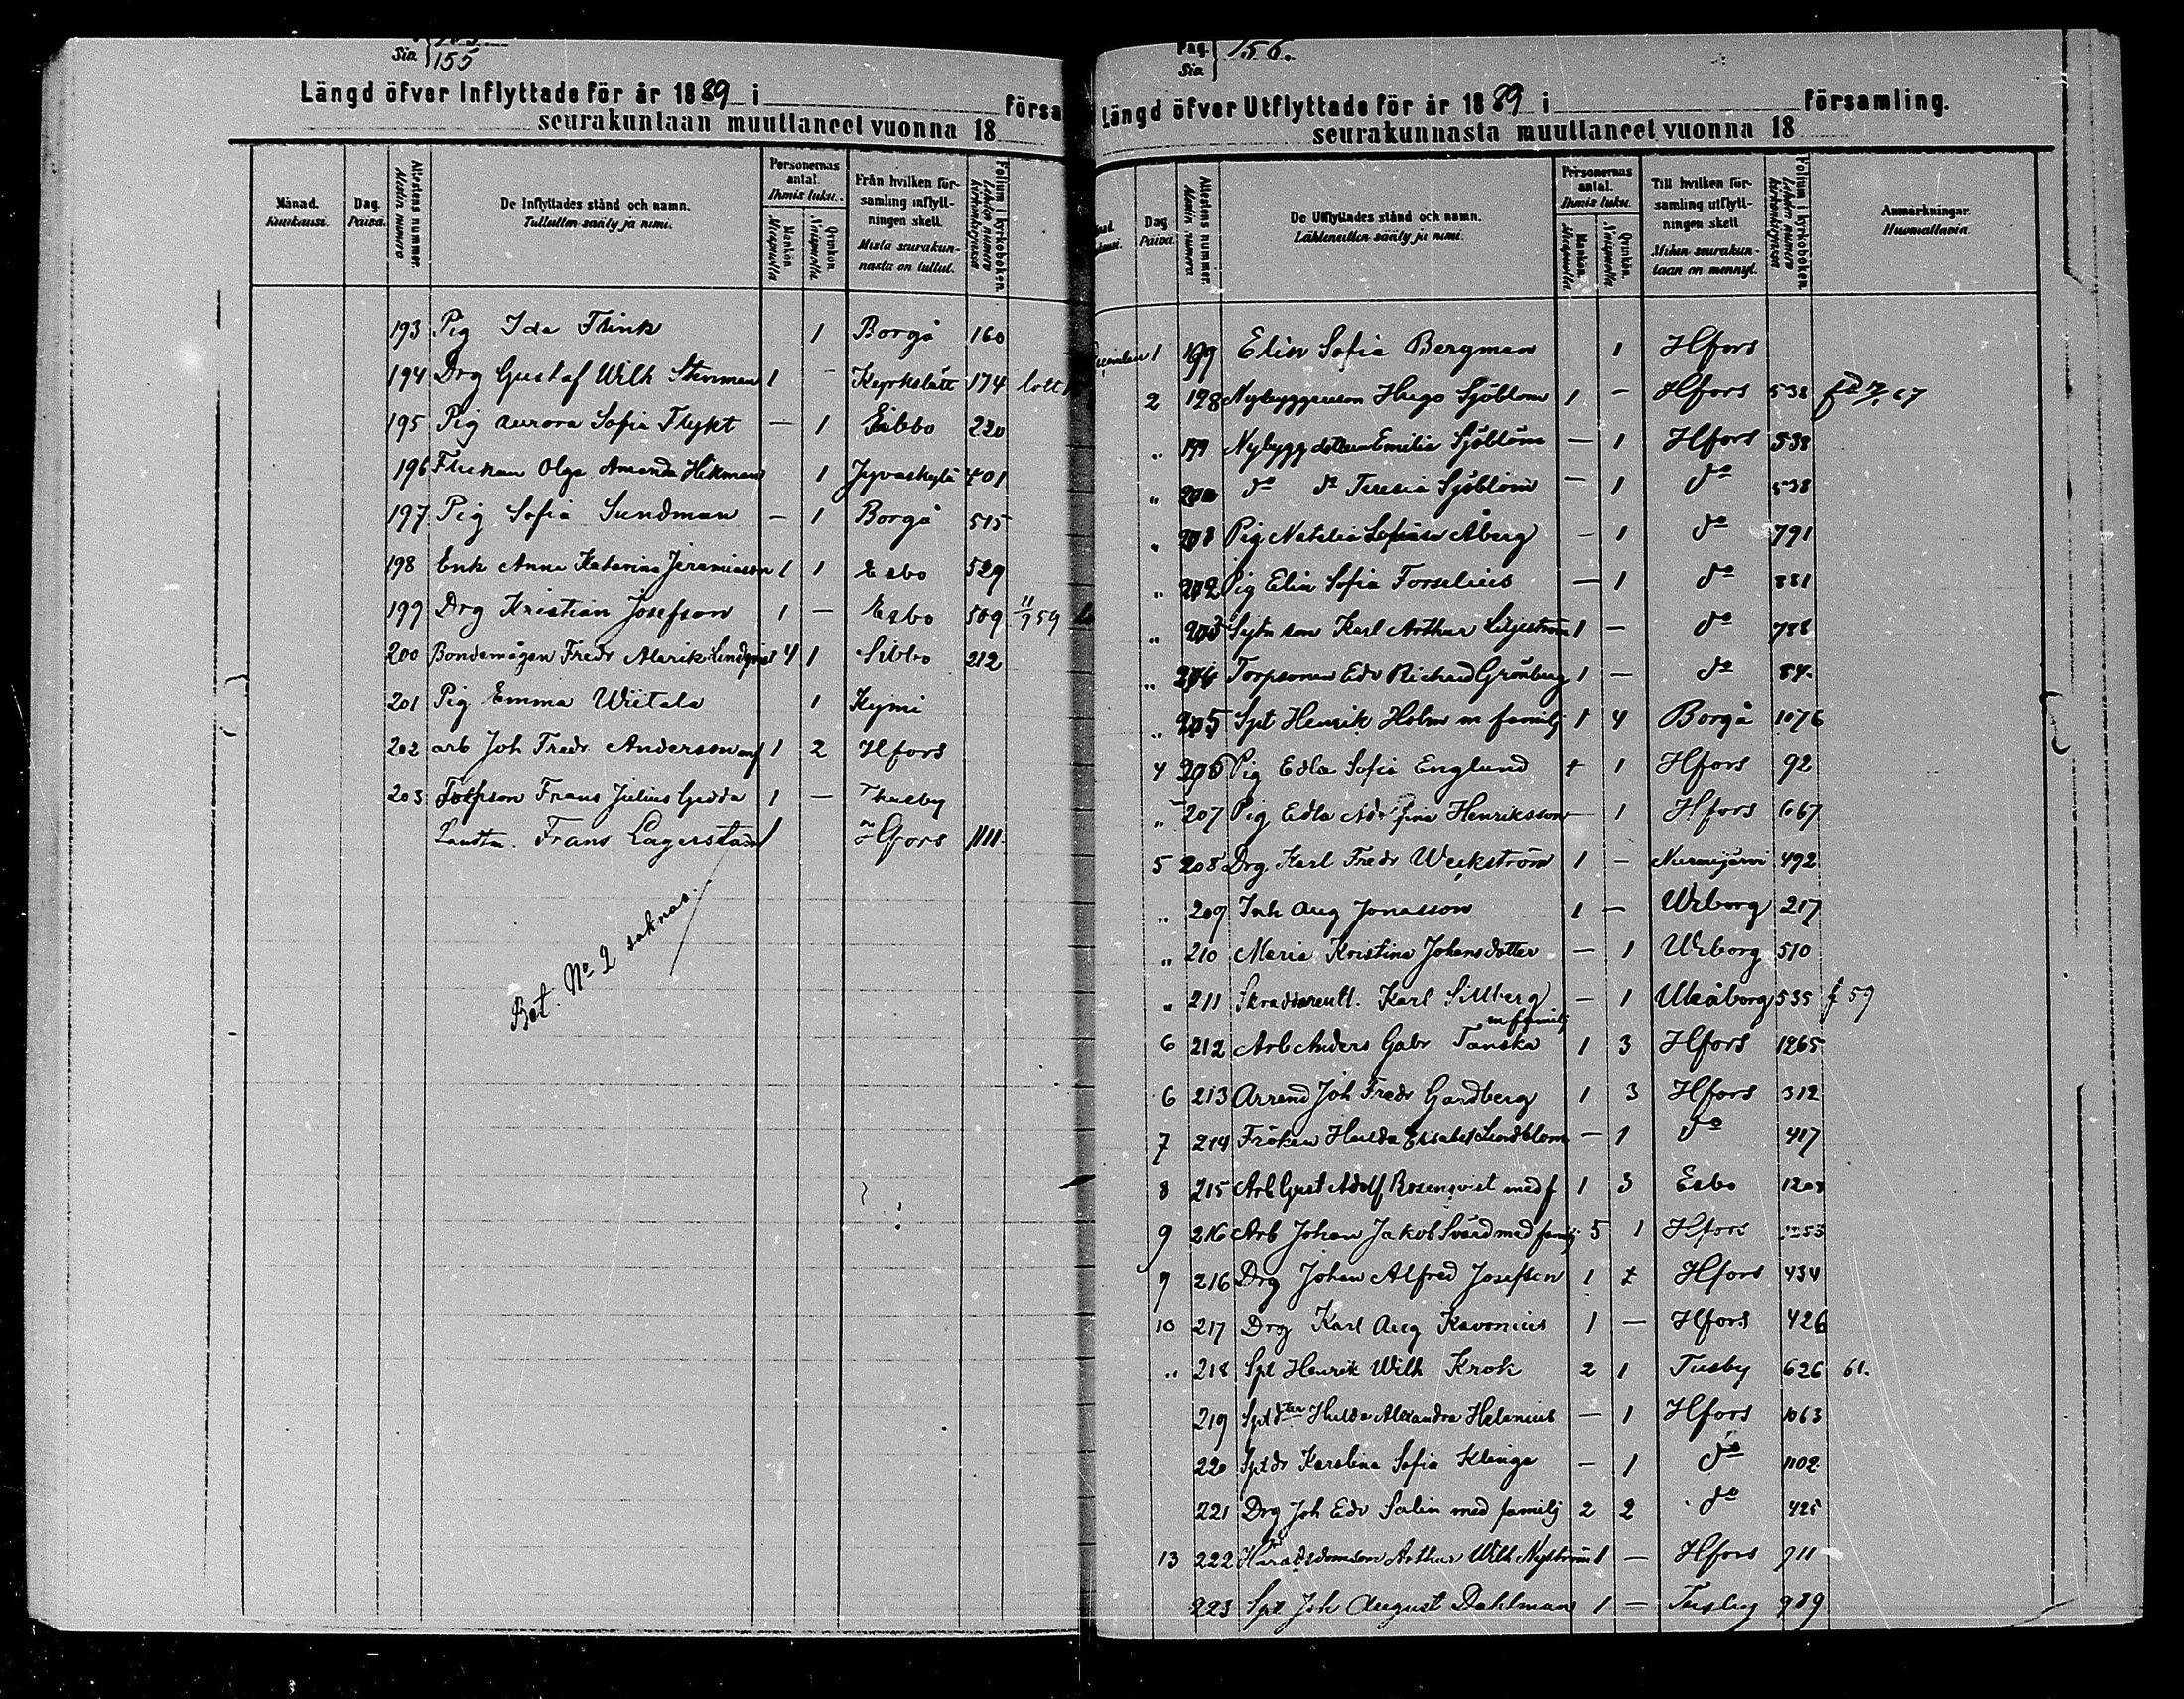 Sia 155
Längd öfver Inflyttade för år 1889 i försa
seurakuntaan muuttaneet vuonna 18
Månad. Kuukausi.
Dag. Päivä.
Attestens nummer. Alestin numero
De Inflyttades stånd och namn. Tulleitten sääty ja nimi.
Personernas antal. Ihmis luku.
Mankön. Miespuolia
Qvinkön. Vaispuolia
Från hvilken församling inflyttningen skett. Mistä seurakunnasta on tullut.
Folium i kyrkoboken. Lehden numero kirkonkirjassa
193 Pig Ida Flink 1 Borgå 160
194 Drg Gustaf Wilh Stenman 1 - Kyrkslätt 174 lott
195 Pig Aurora Sofia Flykt — 1 Sibbo 220
196 Flickan Olga Amanda Hikman 1 Jyväskylä 401
197 Pig Sofia Sundman — 1 Borgå 515
198 Enk Anna Katarina Jeremiasson 1 1 Esbo 529
199 Drg Kristian Josefson 1 — Esbo 509 11/9 59
200 Bondemågen Fredr Alarik Lindqvist 4 1 Sibbo 212
201 Pig Emma Wiitala 1 Kymi
202 arb Joh Fredr Anderson mf 1 2 Hfors
203 Torpson Frans Julius Gedda 1 — Thusby
Landtm. Frans Lagerstad 1 Hfors 1111.
Bet. No 2 saknas.
Pag. Sia 156.
Längd öfver Utflyttade för år 1889 i församling.
seurakunnasta muuttaneet vuonna 18
Dag Päivä.
Attestens nummer. Alestin numero
De Utflyttades stånd och namn. Lähteneitten sääty ja nimi.
Personernas antal. Ihmis luku.
Mankön. Miespuolia
Qvinkön. Vaispuolia
Till hvilken församling utflyttningen skett. Mihin seurakuntaan on mennyt.
Folium i kyrkoboken. Lehden numero kirkonkirjassa
Anmärkningar. Huomattavia.
1 Elin Sofia Bergman 1 Hfors
2 198 Nybyggareson Hugo Sjöblom 1 — Hfors 538
„ 199 Nybygg dottern Emilia Sjöblom — 1 Hfors 538
„ 200 do do Teresia Sjöblom — 1 do 538
„ 201 Pig Natalia Åberg — 1 do 791
„ 202 Pig Elin Sofia Forselius — 1 do 881
„ 203 Sytn son Karl Arthur Liljeström 1 — do 788
„ 204 Torpsonen Edv Richard Grönberg 1 — do 84.
„ 205 Spt Henrik Holm m familj 1 4 Borgå 1076
4 206 Pig Edla Sofia Englund 1 Hfors 92
„ 207 Pig Edla Henriksson — 1 Hfors 1067
5 208 Drg. Karl Fredr Weckström 1 — Nurmijärvi 492
„ 209 Inh Aug Jonasson 1 — Wiborg 217
„ 210 Maria Kristina Johansdotter — 1 Wiborg 510
„ 211 Karl Sillberg — 1 Uleåborg 535 f 59
m familj
6 212 Arb Anders Gabr Tanska 1 3 Hfors 1265
6 213 Arrend Joh Fredr Gardberg 1 3 Hfors 312
7 214 Fröken Hulda Elisabet Lindblom — 1 do 417
8 215 Arb Gust Adolf Rosenqvist med f 1 3 Esbo 1208
9 216 Arb Johan Jakob Svärd med familj 5 1 Hfors
9 216 Drg Johan Alfred Josefson 1 Hfors 434
10 217 Drg Karl Aug Kavonius 1 — Hfors 426
„ 218 Spt Henrik Wilh Krok 2 1 Tusby 626 61.
219 Sptdter Hulda Alexandra Helenius — 1 Hfors 1063
220 Sptdr Karolina Sofia Klinga — 1 do 1102
221 Drg Joh Edv Salin med familj 2 2 do 425
13 222 Häradsdomson Arthur Wilh Nyström 1 — Hfors 911
223 Spt Joh August Dahlman 1 — Tusby 989